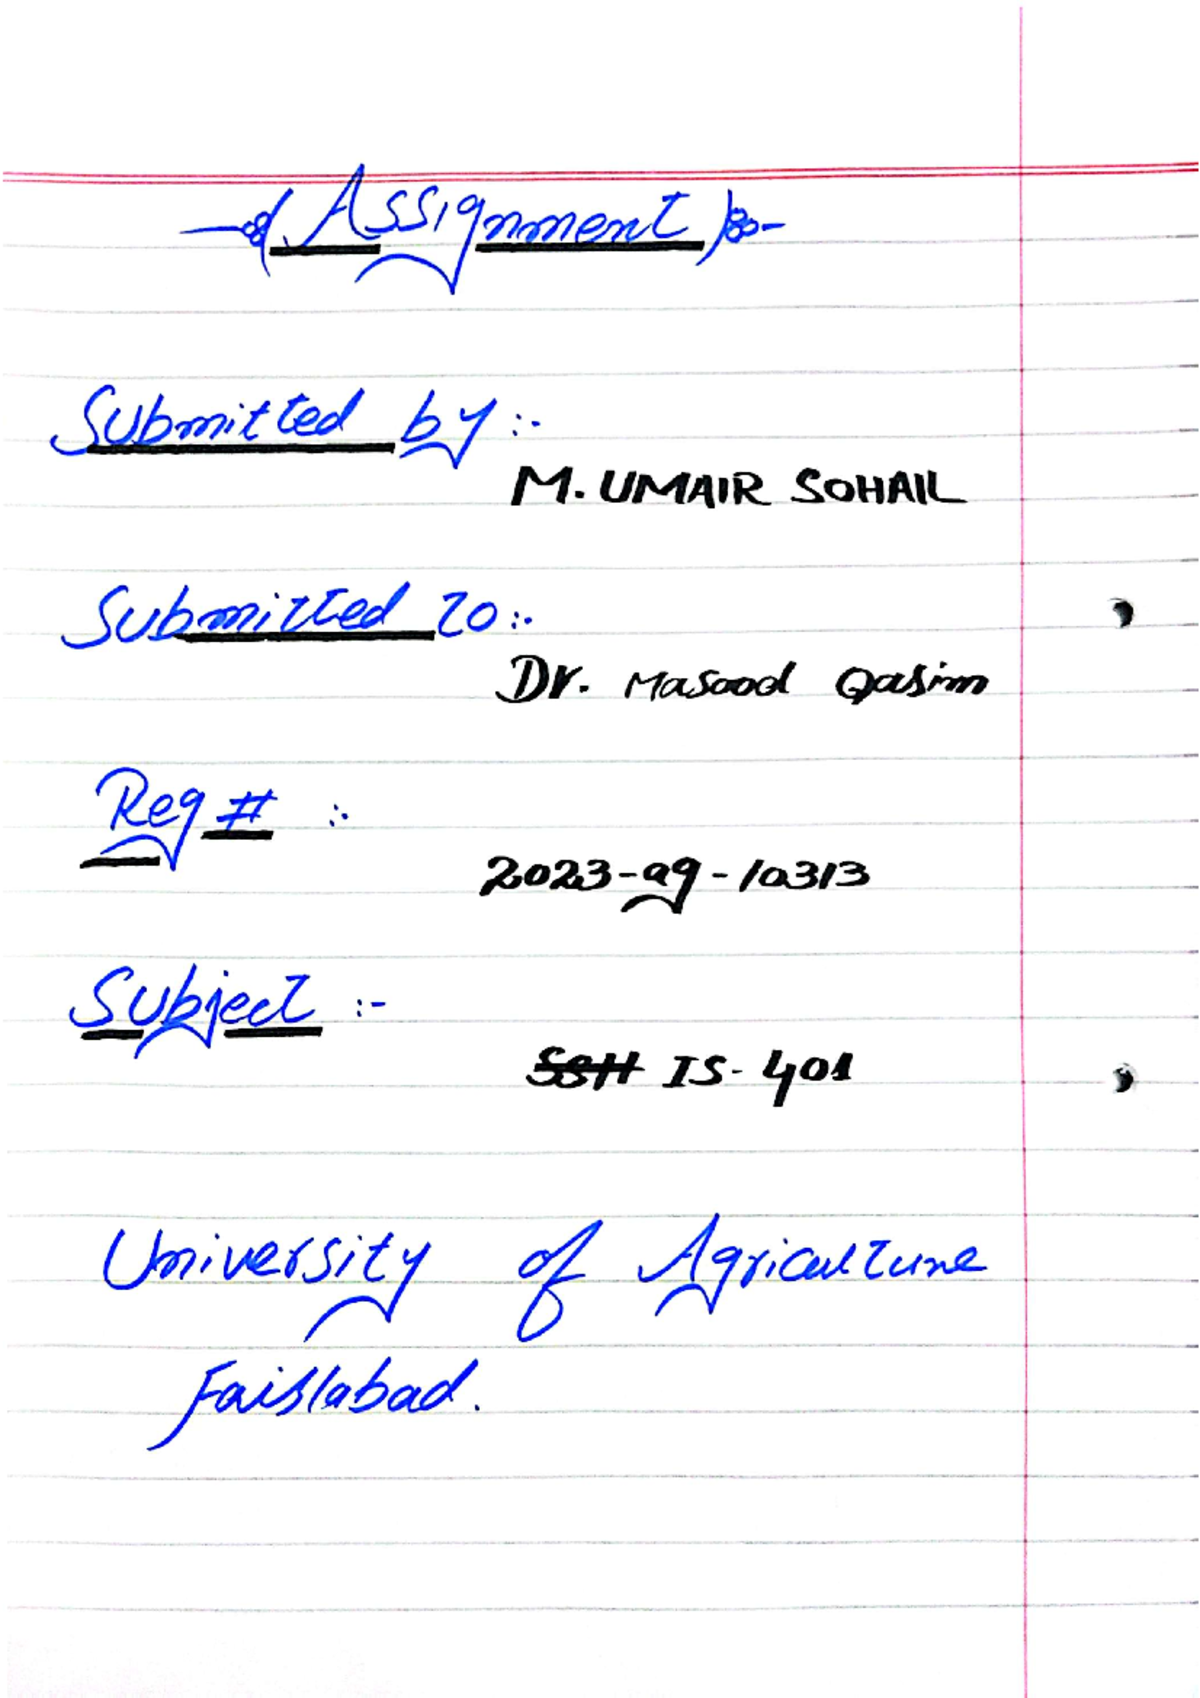 Assignment
Submitted by :-
M. UMAIR SOHAIL
Submitted to :-
Dr. Masood Qasim
Reg # :-
2023-ag-10313
Subject :-
SSH IS-401
University of Agriculture
Faislabad.